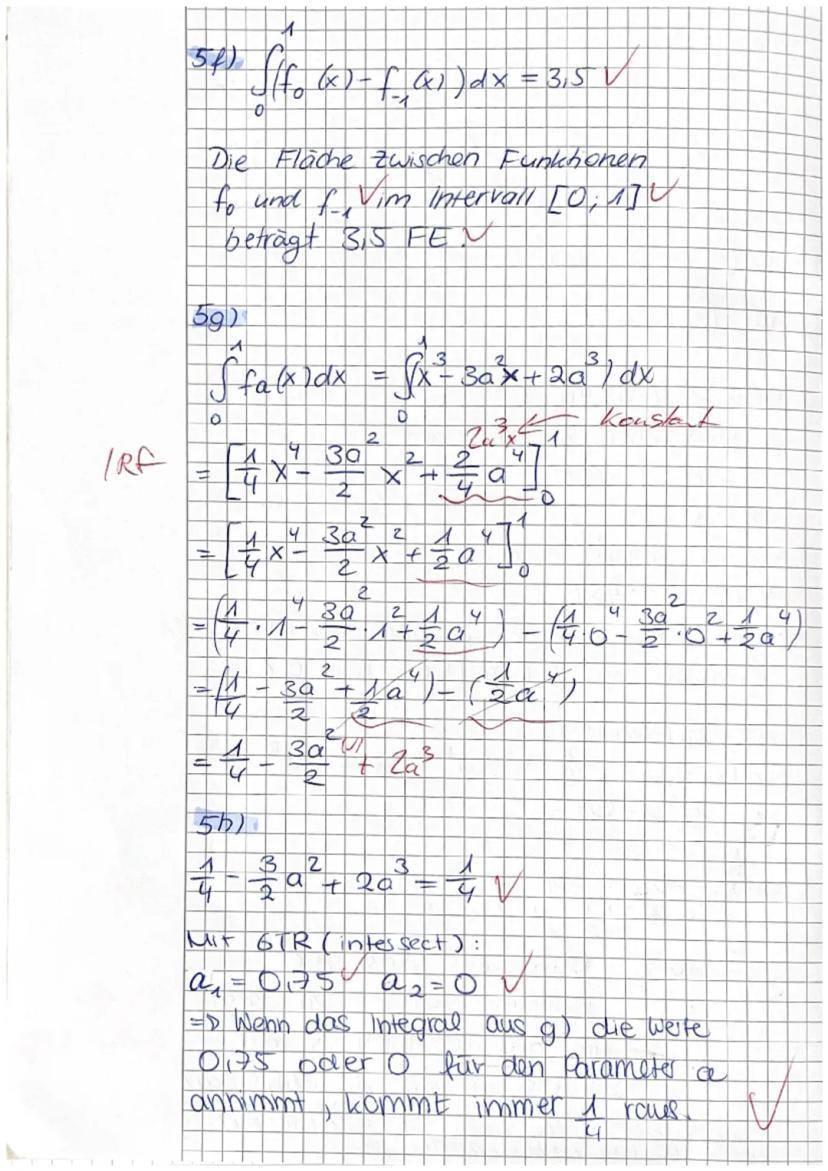 5f) ∫₀¹(f₀(x) - f₋₁(x))dx = 3,5 ✓
Die Fläche zwischen Funktionen
f₀ und f₋₁ ✓ im Intervall [0; 1] ✓
beträgt 3,5 FE. ✓
5g)
∫₀¹ fa(x)dx = ∫₀¹(x³ - 3a²x + 2a³) dx
2a³x ← konstant
1RF = [1/4 x⁴ - 3a²/2 x² + 2/4 a⁴]₀¹
= [1/4 x⁴ - 3a²/2 x² + 1/2 a⁴]₀¹
= (1/4 · 1⁴ - 3a²/2 · 1² + 1/2 a⁴) - (1/4 · 0⁴ - 3a²/2 · 0² + 1/2 a⁴)
= (1/4 - 3a²/2 + 1/2 a⁴) - (1/2 a⁴)
= 1/4 - 3a²/2 (✓) + 2a³
5h)
1/4 - 3/2 a² + 2a³ = 1/4 ✓
Mit GTR (intersect):
a₁ = 0,75 ✓ a₂ = 0 ✓
=> Wenn das Integral aus g) die Werte
0,75 oder 0 für den Parameter a
annimmt, kommt immer 1/4 raus. ✓